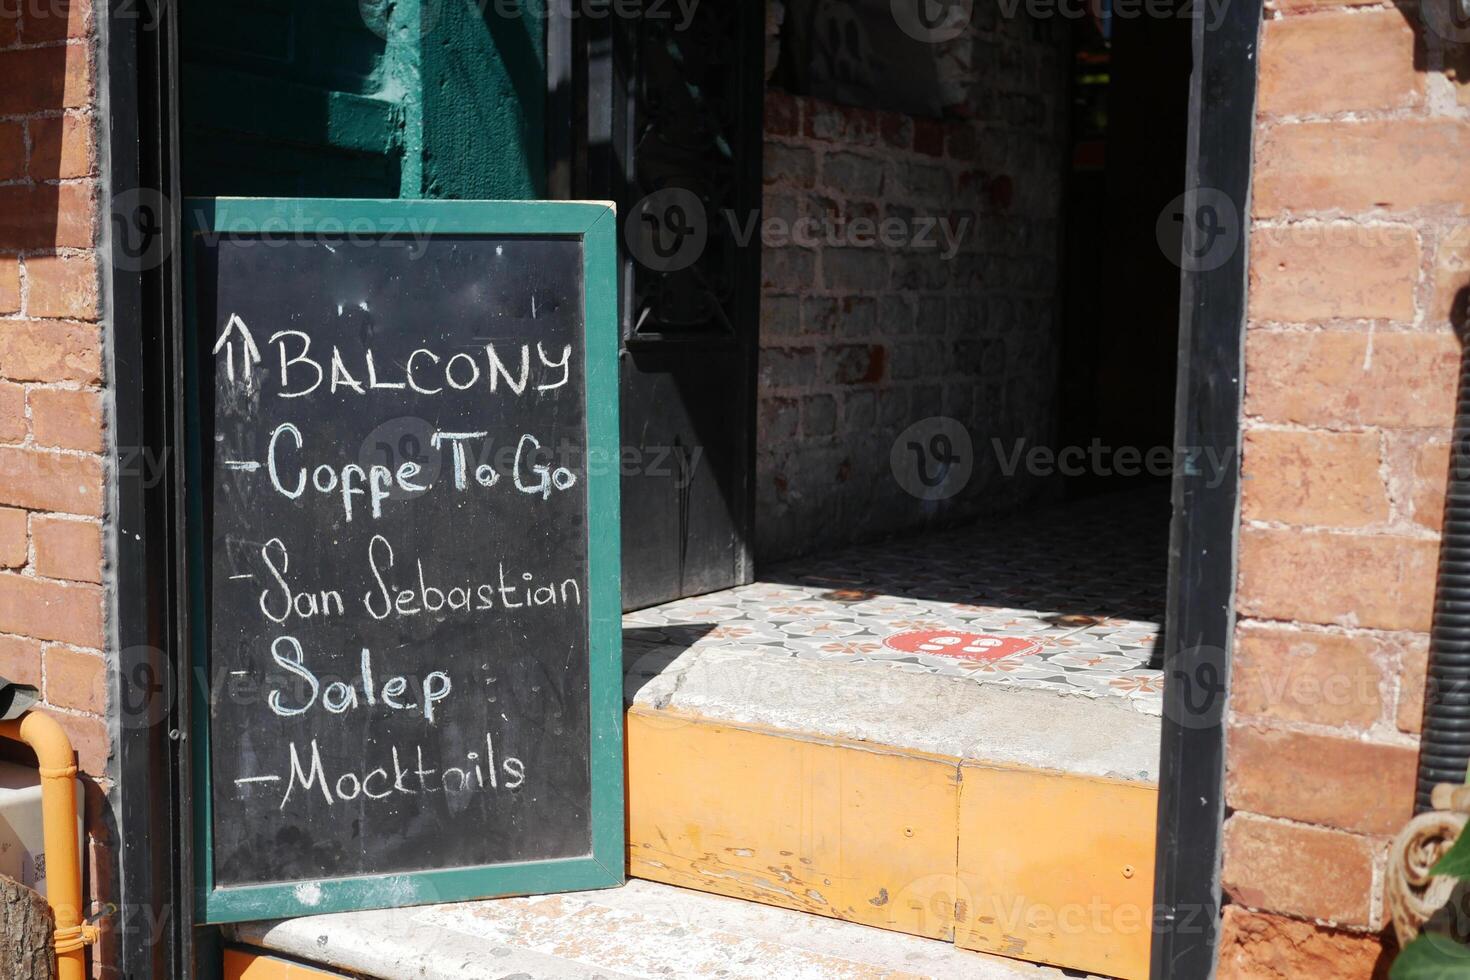 ↑ BALCONY
- Coffe To Go
- San Sebastian
- Salep
- Mocktails